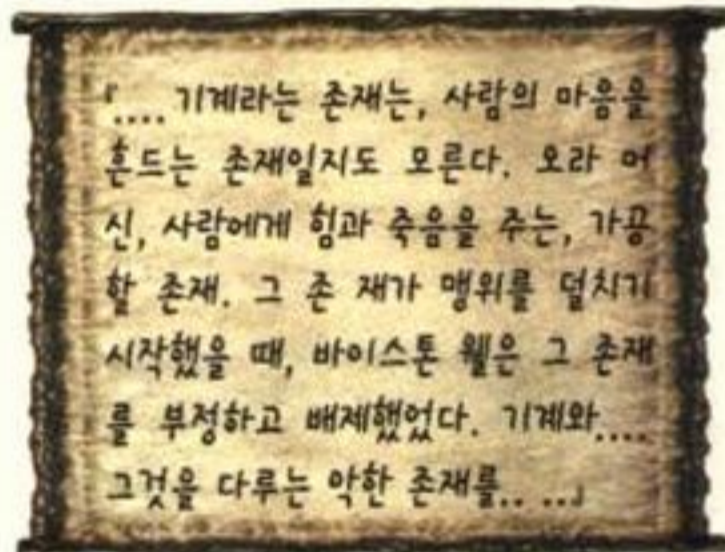 『.... 기계라는 존재는, 사람의 마음을
흔드는 존재일지도 모른다. 오라 머
신, 사람에게 힘과 죽음을 주는, 가공
할 존재. 그 존 재가 맹위를 덜치기
시작했을 때, 바이스톤 웰은 그 존재
를 부정하고 배제했었다. 기계와....
그것을 다루는 악한 존재를.. ..』